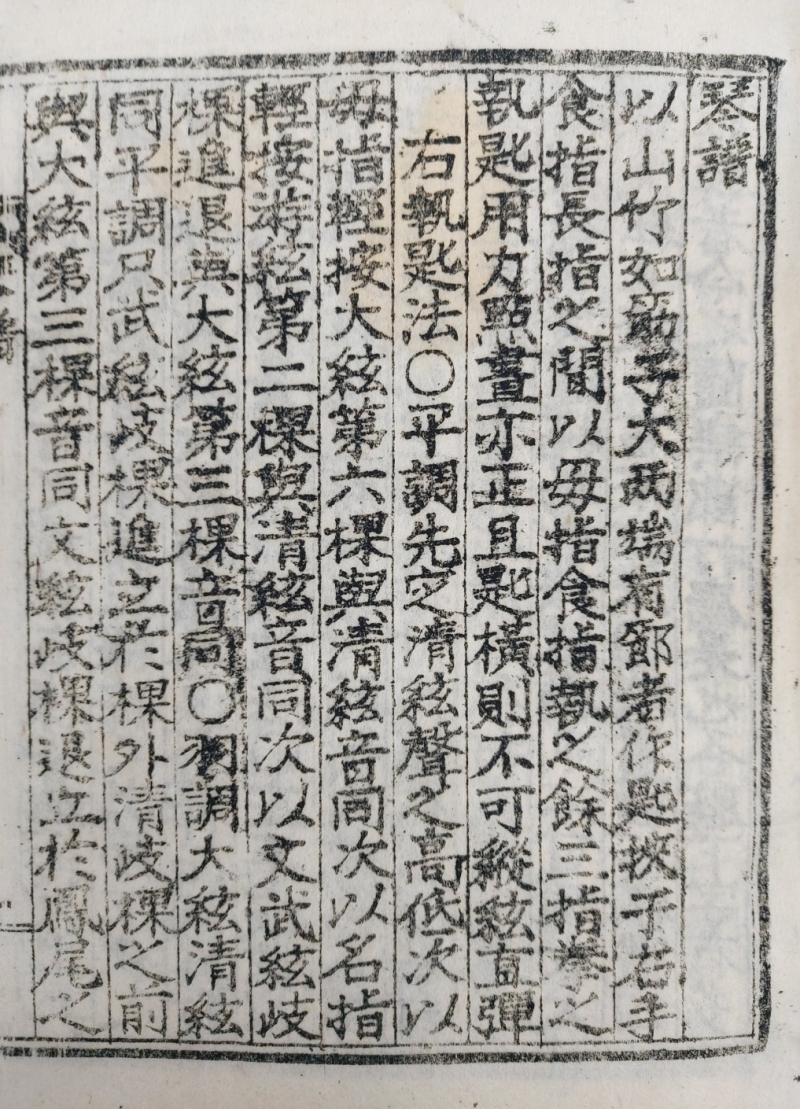 琴譜
以山竹如筯子大兩端有節者作匙挾于右手
食指長指之間以毋指食指執之餘三指拳之
執匙用力點畫亦正且匙橫則不可縱絃直彈
右執匙法〇平調先定清絃聲之高低次以
毋指輕按大絃第六棵與清絃音同次以名指
輕按游絃第二棵與清絃音同次以文武絃歧
棵進退與大絃第三棵音同〇羽調大絃清絃
同平調只武絃歧棵進立於棵外清歧棵之前
與大絃第三棵音同文絃歧棵退立於鳳尾之